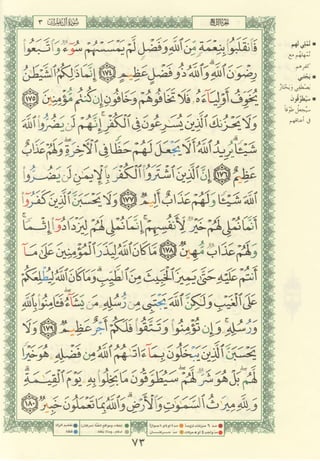 ٣ سورة آل عمران الجزء الرابع
فَٱنقَلَبُوا۟ بِنِعْمَةٍ مِّنَ ٱللَّهِ وَفَضْلٍ لَّمْ يَمْسَسْهُمْ سُوٓءٌ وَٱتَّبَعُوا۟
رِضْوَٰنَ ٱللَّهِ وَٱللَّهُ ذُو فَضْلٍ عَظِيمٍ ١٧٤ إِنَّمَا ذَٰلِكُمُ ٱلشَّيْطَٰنُ
يُخَوِّفُ أَوْلِيَآءَهُۥ فَلَا تَخَافُوهُمْ وَخَافُونِ إِن كُنتُم مُّؤْمِنِينَ ١٧٥
وَلَا يَحْزُنكَ ٱلَّذِينَ يُسَٰرِعُونَ فِى ٱلْكُفْرِ إِنَّهُمْ لَن يَضُرُّوا۟ ٱللَّهَ
شَيْـًٔا يُرِيدُ ٱللَّهُ أَلَّا يَجْعَلَ لَهُمْ حَظًّا فِى ٱلْـَٔاخِرَةِ وَلَهُمْ عَذَابٌ
عَظِيمٌ ١٧٦ إِنَّ ٱلَّذِينَ ٱشْتَرَوُا۟ ٱلْكُفْرَ بِٱلْإِيمَٰنِ لَن يَضُرُّوا۟
ٱللَّهَ شَيْـًٔا وَلَهُمْ عَذَابٌ أَلِيمٌ ١٧٧ وَلَا يَحْسَبَنَّ ٱلَّذِينَ كَفَرُوٓا۟
أَنَّمَا نُمْلِى لَهُمْ خَيْرٌ لِّأَنفُسِهِمْ إِنَّمَا نُمْلِى لَهُمْ لِيَزْدَادُوٓا۟ إِثْمًا
وَلَهُمْ عَذَابٌ مُّهِينٌ ١٧٨ مَّا كَانَ ٱللَّهُ لِيَذَرَ ٱلْمُؤْمِنِينَ عَلَىٰ مَآ
أَنتُمْ عَلَيْهِ حَتَّىٰ يَمِيزَ ٱلْخَبِيثَ مِنَ ٱلطَّيِّبِ وَمَا كَانَ ٱللَّهُ لِيُطْلِعَكُمْ
عَلَى ٱلْغَيْبِ وَلَٰكِنَّ ٱللَّهَ يَجْتَبِى مِن رُّسُلِهِۦ مَن يَشَآءُ فَـَٔامِنُوا۟ بِٱللَّهِ
وَرُسُلِهِۦ وَإِن تُؤْمِنُوا۟ وَتَتَّقُوا۟ فَلَكُمْ أَجْرٌ عَظِيمٌ ١٧٩ وَلَا
يَحْسَبَنَّ ٱلَّذِينَ يَبْخَلُونَ بِمَآ ءَاتَىٰهُمُ ٱللَّهُ مِن فَضْلِهِۦ هُوَ خَيْرًا
لَّهُم بَلْ هُوَ شَرٌّ لَّهُمْ سَيُطَوَّقُونَ مَا بَخِلُوا۟ بِهِۦ يَوْمَ ٱلْقِيَٰمَةِ
وَلِلَّهِ مِيرَٰثُ ٱلسَّمَٰوَٰتِ وَٱلْأَرْضِ وَٱللَّهُ بِمَا تَعْمَلُونَ خَبِيرٌ ١٨٠
٧٣
نُمْلِي لهم
يجتبي
سيُطوَّقون